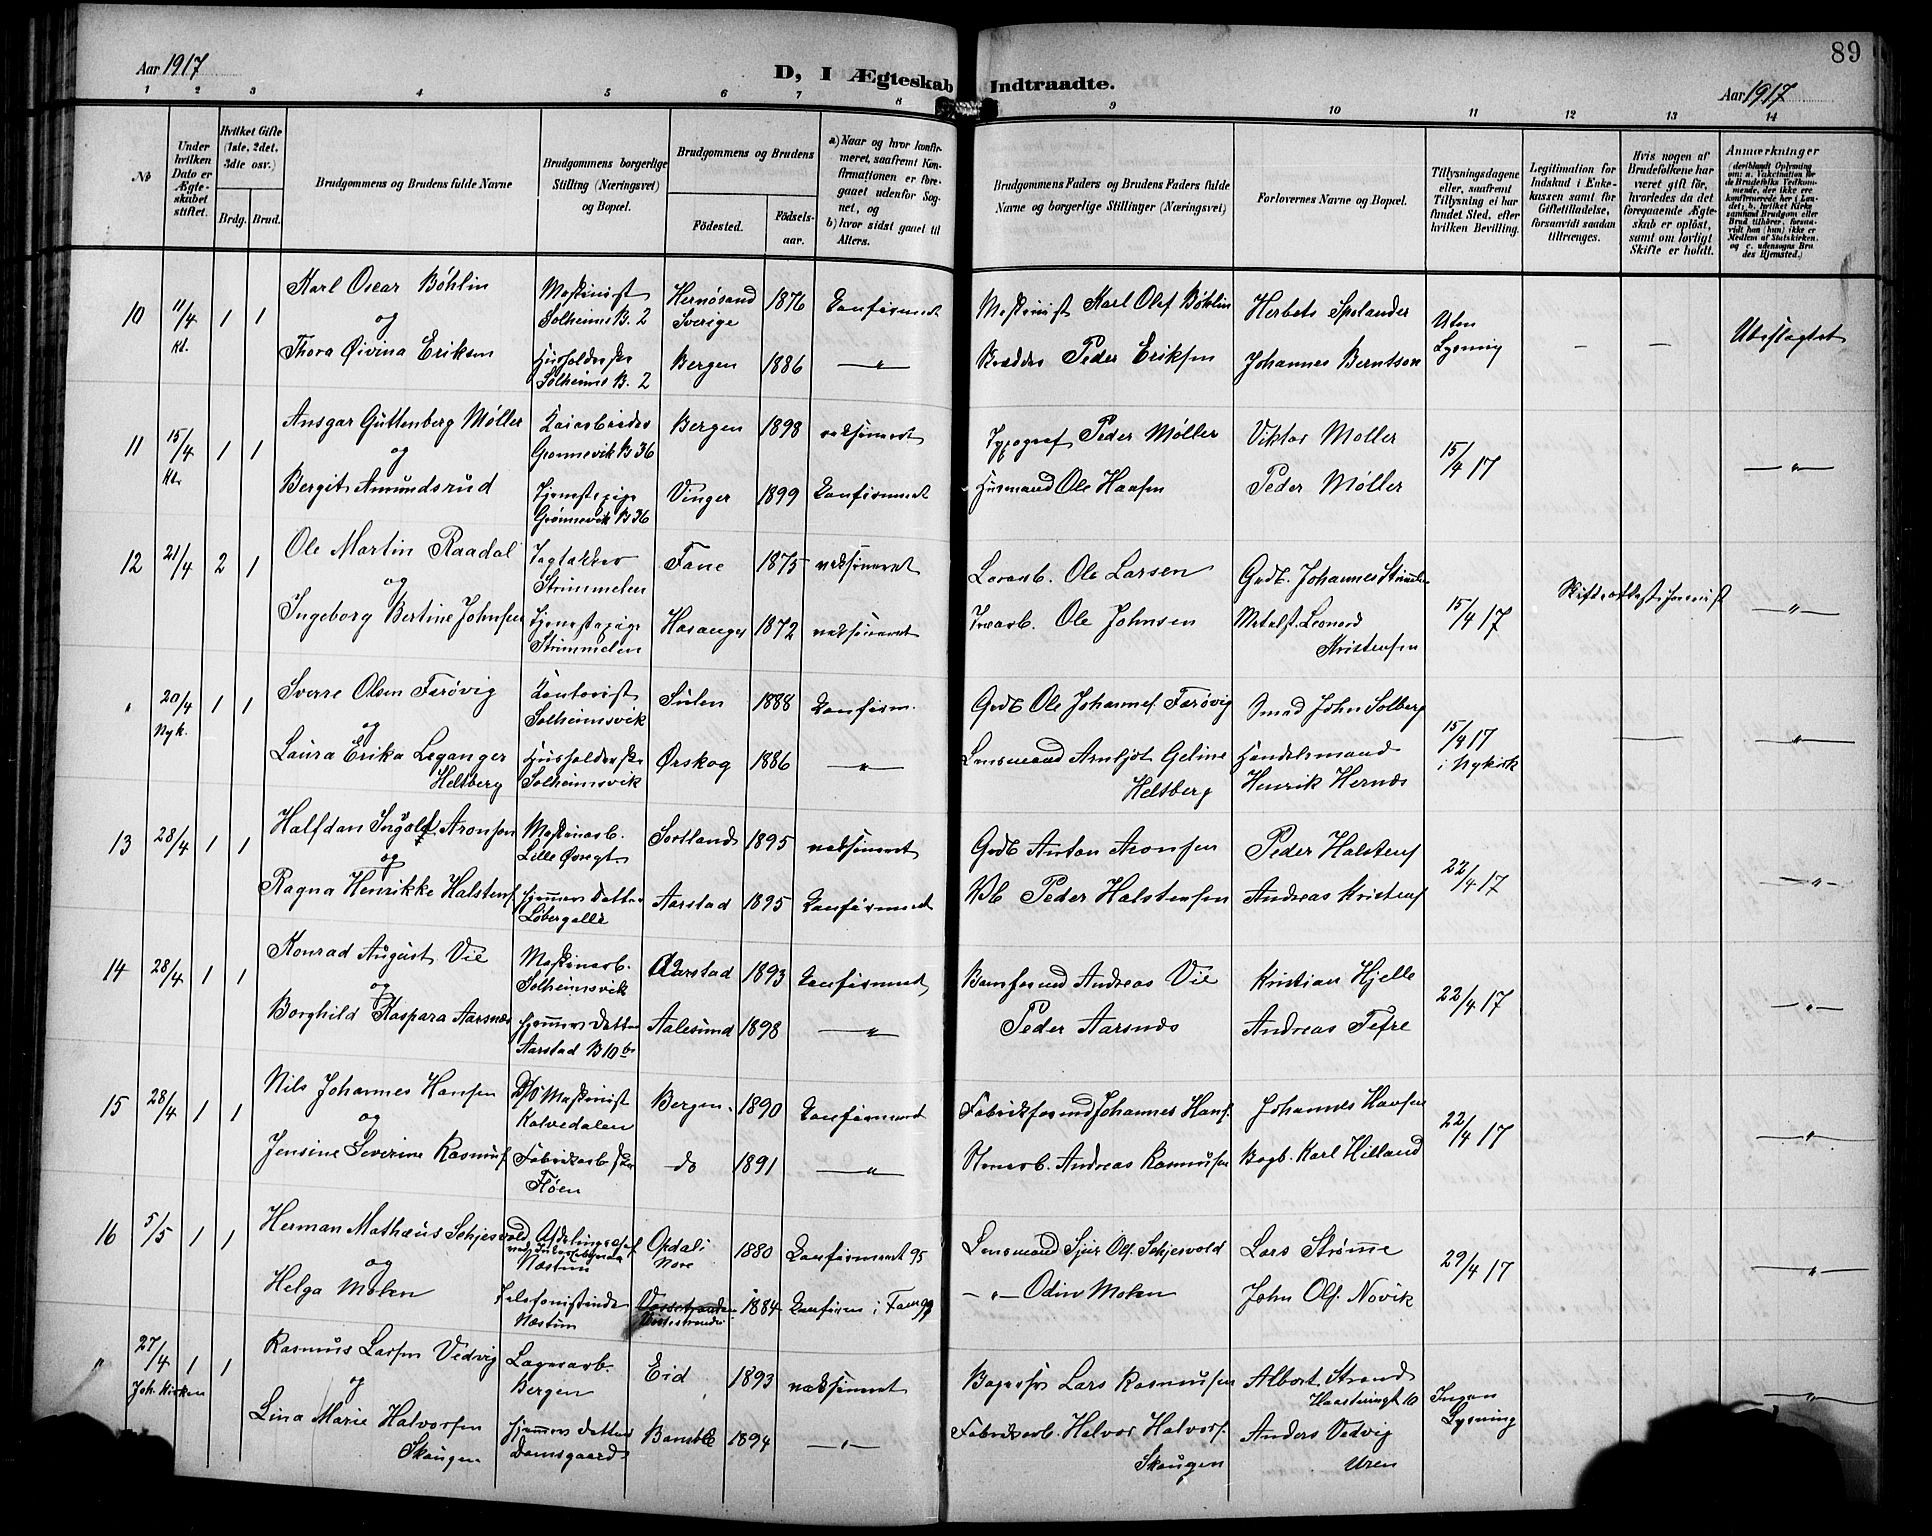 89
Aar 1917
D, I Ægteskab Indtraadte.
Aar 1917
1 2 3 4 5 6 7 8 9 10 11 12 13 14
No
Under hvilken Dato er Ægteskabet stiftet.
Hvilket Gifte (1ste, 2det, 3die osv.)
Brdg. Brud.
Brudgommens og Brudens fulde Navne
Brudgommens borgerlige Stilling (Næringsvei) og Bopæl.
Brudgommens og Brudens
Fødested.
Fødselsaar.
a) Naar og hvor konfirmeret, saafremt Konfirmationen er foregaaet udenfor Sognet, og
b) hvor sidst gaaet til Alters.
Brudgommens Faders og Brudens Faders fulde Navne og borgerlige Stillinger (Næringsvei)
Forlovernes Navne og Bopæl.
Tillysningsdagene eller, saafremt Tillysning ei har fundet Sted, efter hvilken Bevilling.
Legitimation for Indskud i Enkekassen samt for Giftetilladelse, forsaavidt saadan tiltrænges.
Hvis nogen af Brudefolkene har været gift før, hvorledes da det foregaaende Ægteskab er opløst, samt om lovligt Skifte er holdt.
Anmærkninger
(deriblandt Oplysning om: a. Vaksination for de Brudefolks Vedkommende, der ikke ere konfirmerede her i Landet; b. hvilket Kirkesamfund Brudgom eller Brud tilhører, forsaavidt han (hun) ikke er Medlem af Statskirken, og c. udensogns Brudes Hjemsted.)
10 11/4 kl. 1 1 Karl Oscar Böhlin Maskinist Solheims B. 2 Hernösand Sverige 1876 Konfirmeret Maskinist Karl Olof Böhlin Herbets Spolander Uten Lysning — — Ubeslægtet
og
Thora Øivina Eriksen Husholderske Solheims B. 2 Bergen 1886 —"— Skrædder Peder Eriksen Johannes Berntsson
11 15/4 kl. 1 1 Ansgar Guttenberg Møller Kaiarbeider Grønnevik B 36 Bergen 1898 vaksineret Typograf Peder Møller Viktor Møller 15/4 17 —"—
og
Bergit Amundsrud Tjenestepige Grønnevik B 36 Vinger 1899 Konfirmeret Husmand Ole Hansen Peder Møller
12 21/4 2 1 Ole Martin Raadal Tagtækker Strimmelen Fane 1875 vaksineret Løsarb. Ole Larsen Grdb. Johannes Strimmelen 15/4 17 —"—
og
Ingeborg Bertine Johnsen Tjenestepige Strimmelen Hosanger 1872 vaksineret Træarb. Ole Johnsen Metalst. Leonard Kristensen
" 20/4 Nyk. 1 1 Sverre Olsen Færøvig Kontorist Solheimsvik Sulen 1888 Konfirm. Grdb. Ole Johannes. Færøvig Smed John Solberg 15/4 17 i Nykirk — —"—
og
Laura Erika Leganger Heltberg Husholderske Solheimsvik Ørskog 1886 —"— Lensmand Arnljot Geline Heltberg Handelsmand Henrik Hernæs
13 28/4 1 1 Halfdan Ingolf Aronsen Maskinarb. Lille Øvregt. Sortland 1895 vaksineret Grdb. Anton Aronsen Peder Halstens. 22/4 17 —"—
og
Ragna Henrikke Halstens. Hjemmev. Datter Løbergsalle Aarstad 1895 Konfirmeret Peder Halstensen Andreas Kristens.
14 28/4 1 1 Konrad August Vie Maskinarb. Solheimsvik Aarstad 1893 Konfirmeret Banformand Andreas Vie Kristian Hjelle 22/4 17 —"—
og
Borghild Kaspara Aarsnes Hjemmev. Datter Aarstad B 10 b Aalesund 1898 —"— Peder Aarsnæs Andreas Tefre
15 28/4 1 1 Nils Johannes Hansen D/S Maskinist Kalvedalen Bergen. 1890 Konfirmeret Fabrikformd Johannes Hans. Johannes Hansen 22/4 17 —"—
og
Jensine Severine Rasmus. Fabrikarb.ske Fløen do 1891 —"— Stenarb. Andreas Rasmusen Bogb. Karl Hilland
16 5/5 1 1 Herman Mathæus Schjesvold Næstun Opdal i Nore 1880 Konfirmeret 95 Lensmand Sjur Ols. Schjesvold Lars Strømme 29/4 17 —"—
og
Helga Mohn Telefonistinde Næstun Vossestranden 1884 Konfirm. i Fane 99 —"— Odin Mohn John Ols. Novik
" 27/4 Joh. kirken 1 1 Rasmus Larsen Vedvig Lagerarb. Bergen Eid 1893 vaksineret Lars Rasmusen Albert Strand Haasteinsgt 10 Ingen Lysning —"—
og
Lina Marie Halvorsen Skaugen Hjemmev. Datter Damsgaard Bamble 1894 —"— Fabrikarb. Halvor Halvors. Skaugen Anders Vedvig Uren